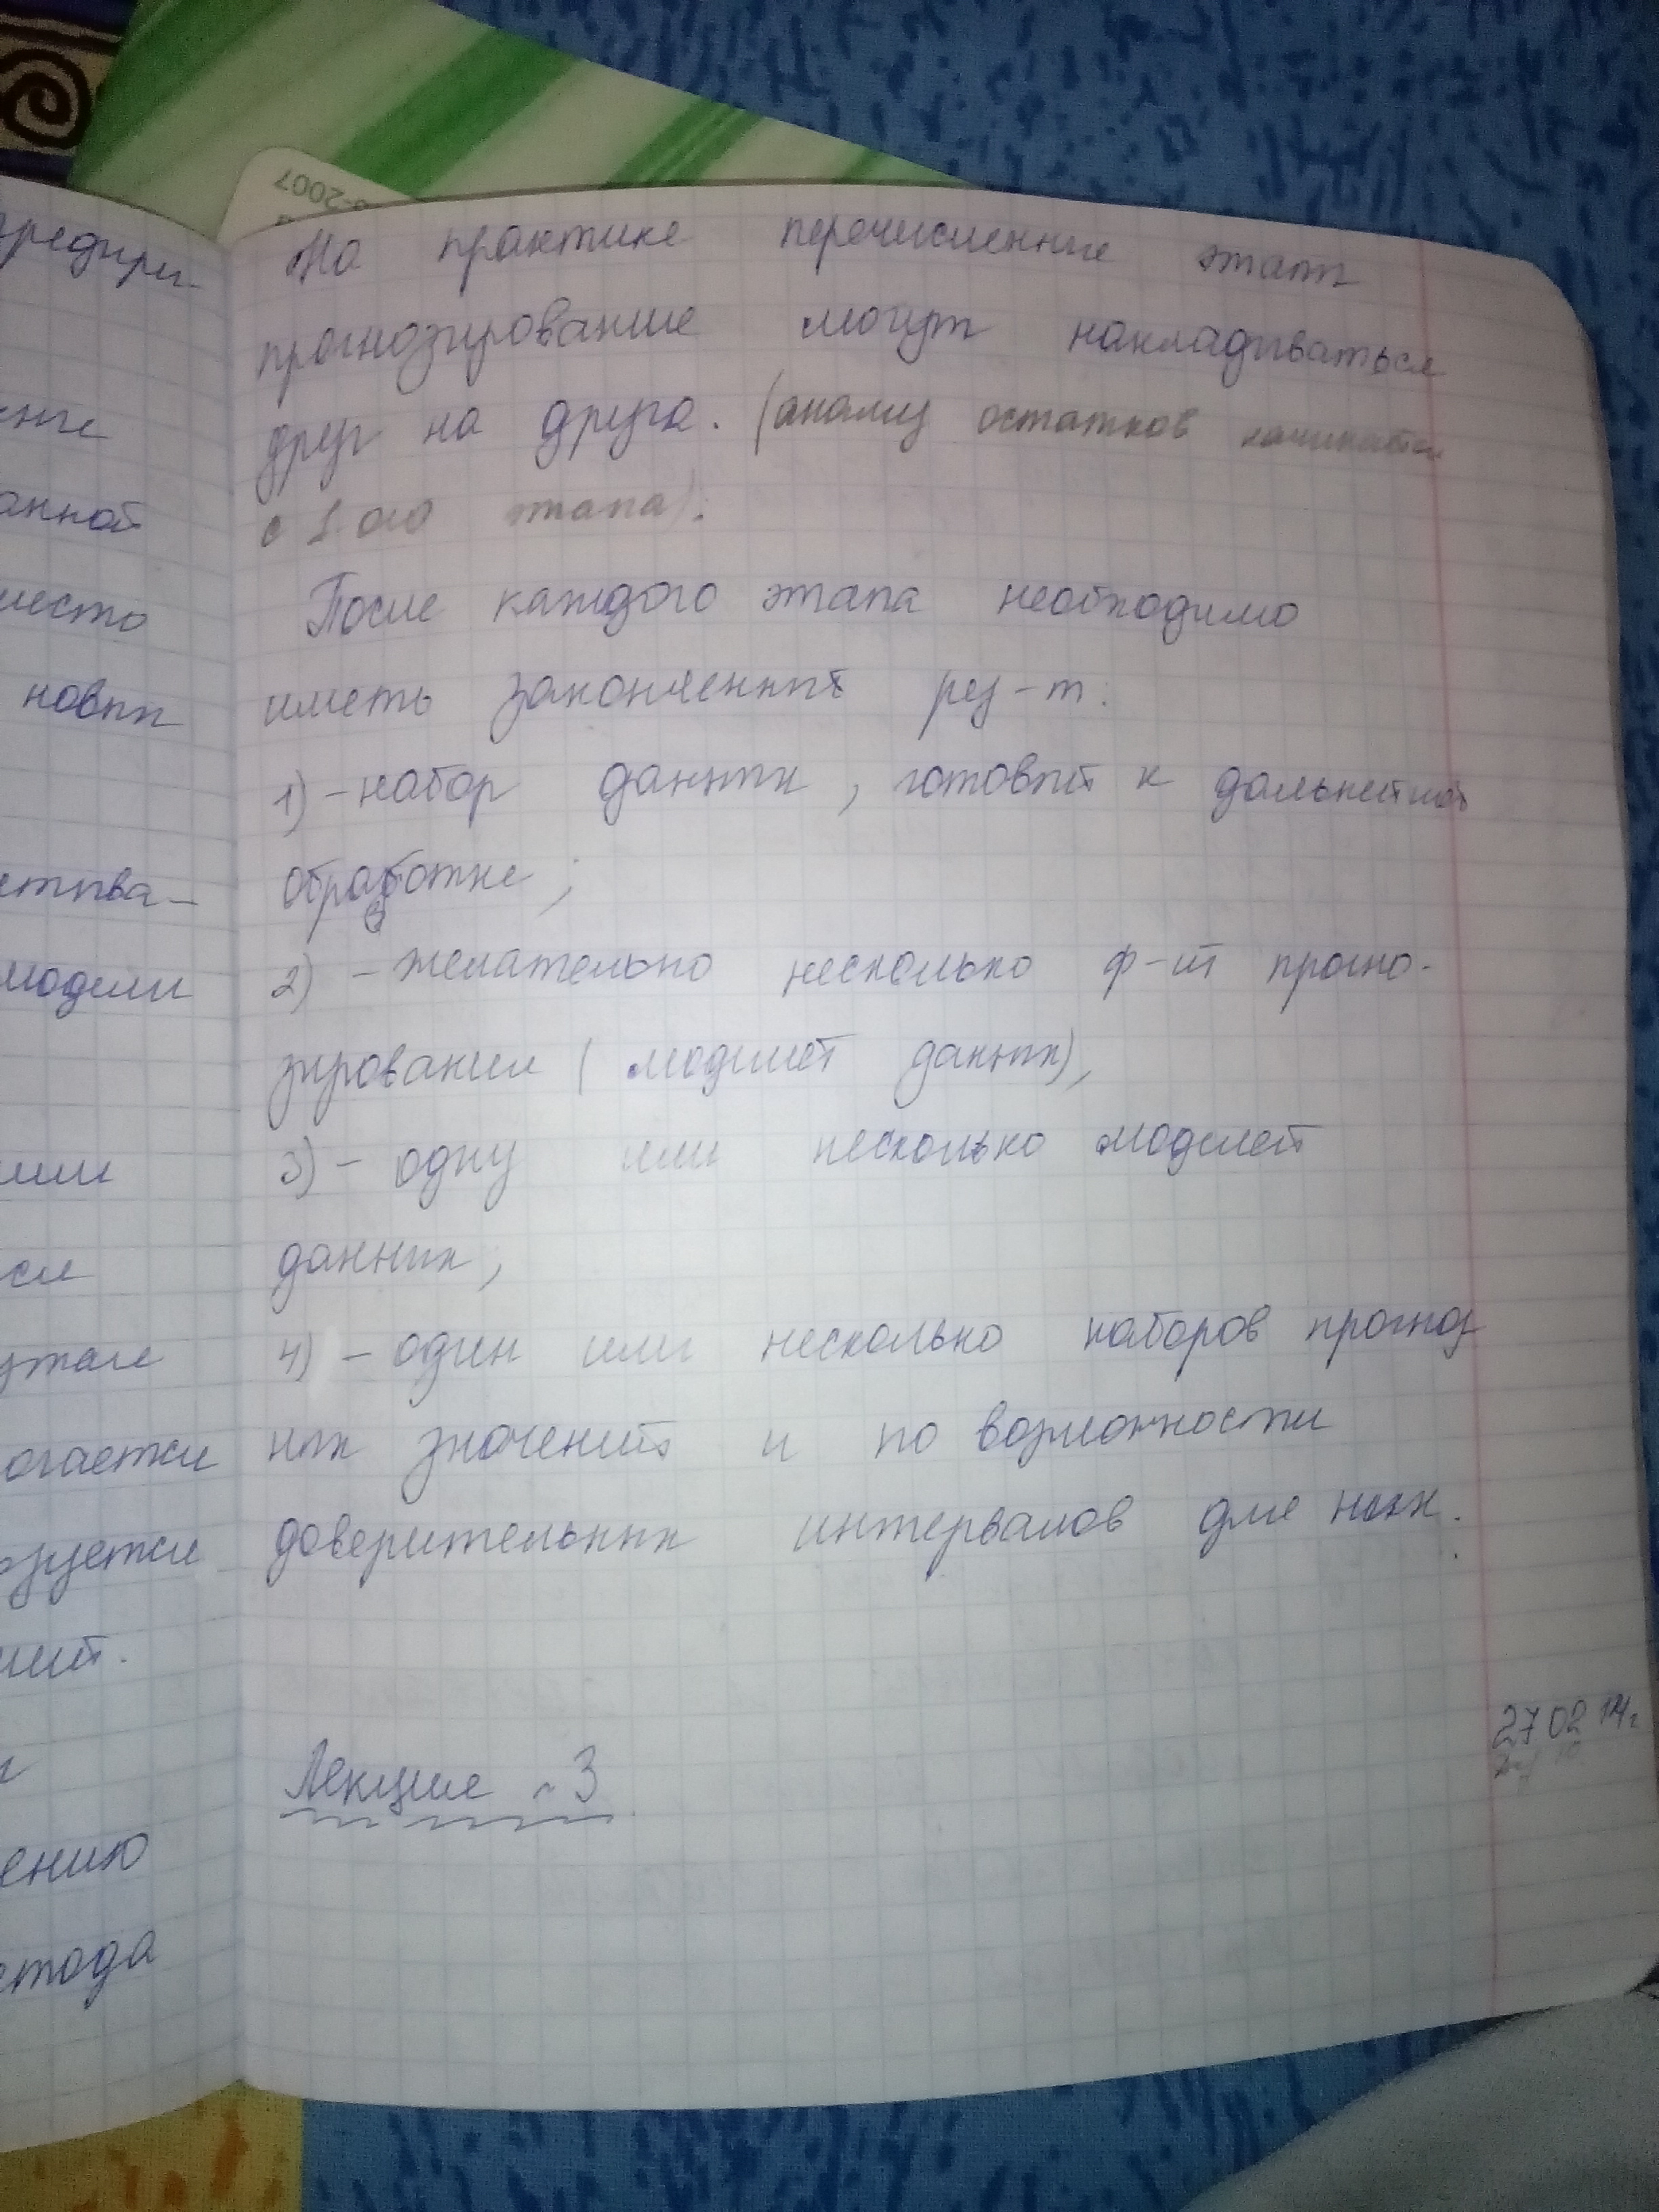 6-2007
предпри-
анной
место
новых
модели
или
ся
огается
зуется
ению
етода
На практике перечисленные этапы
прогнозирование могут накладываться
друг на друга. (анализ остатков начинается
с 1 ого этапа).
После каждого этапа необходимо
иметь законченный рез-т:
1) - набор данных, готовый к дальнейшей
обработке;
2) - желательно несколько ф-й прогно-
зирования (моделей данных),
3) - одну или несколько моделей
данных;
4) - один или несколько наборов прогноз
ных значений и по возможности
доверительных интервалов для них.
27 02 14г
Лекция ~ 3